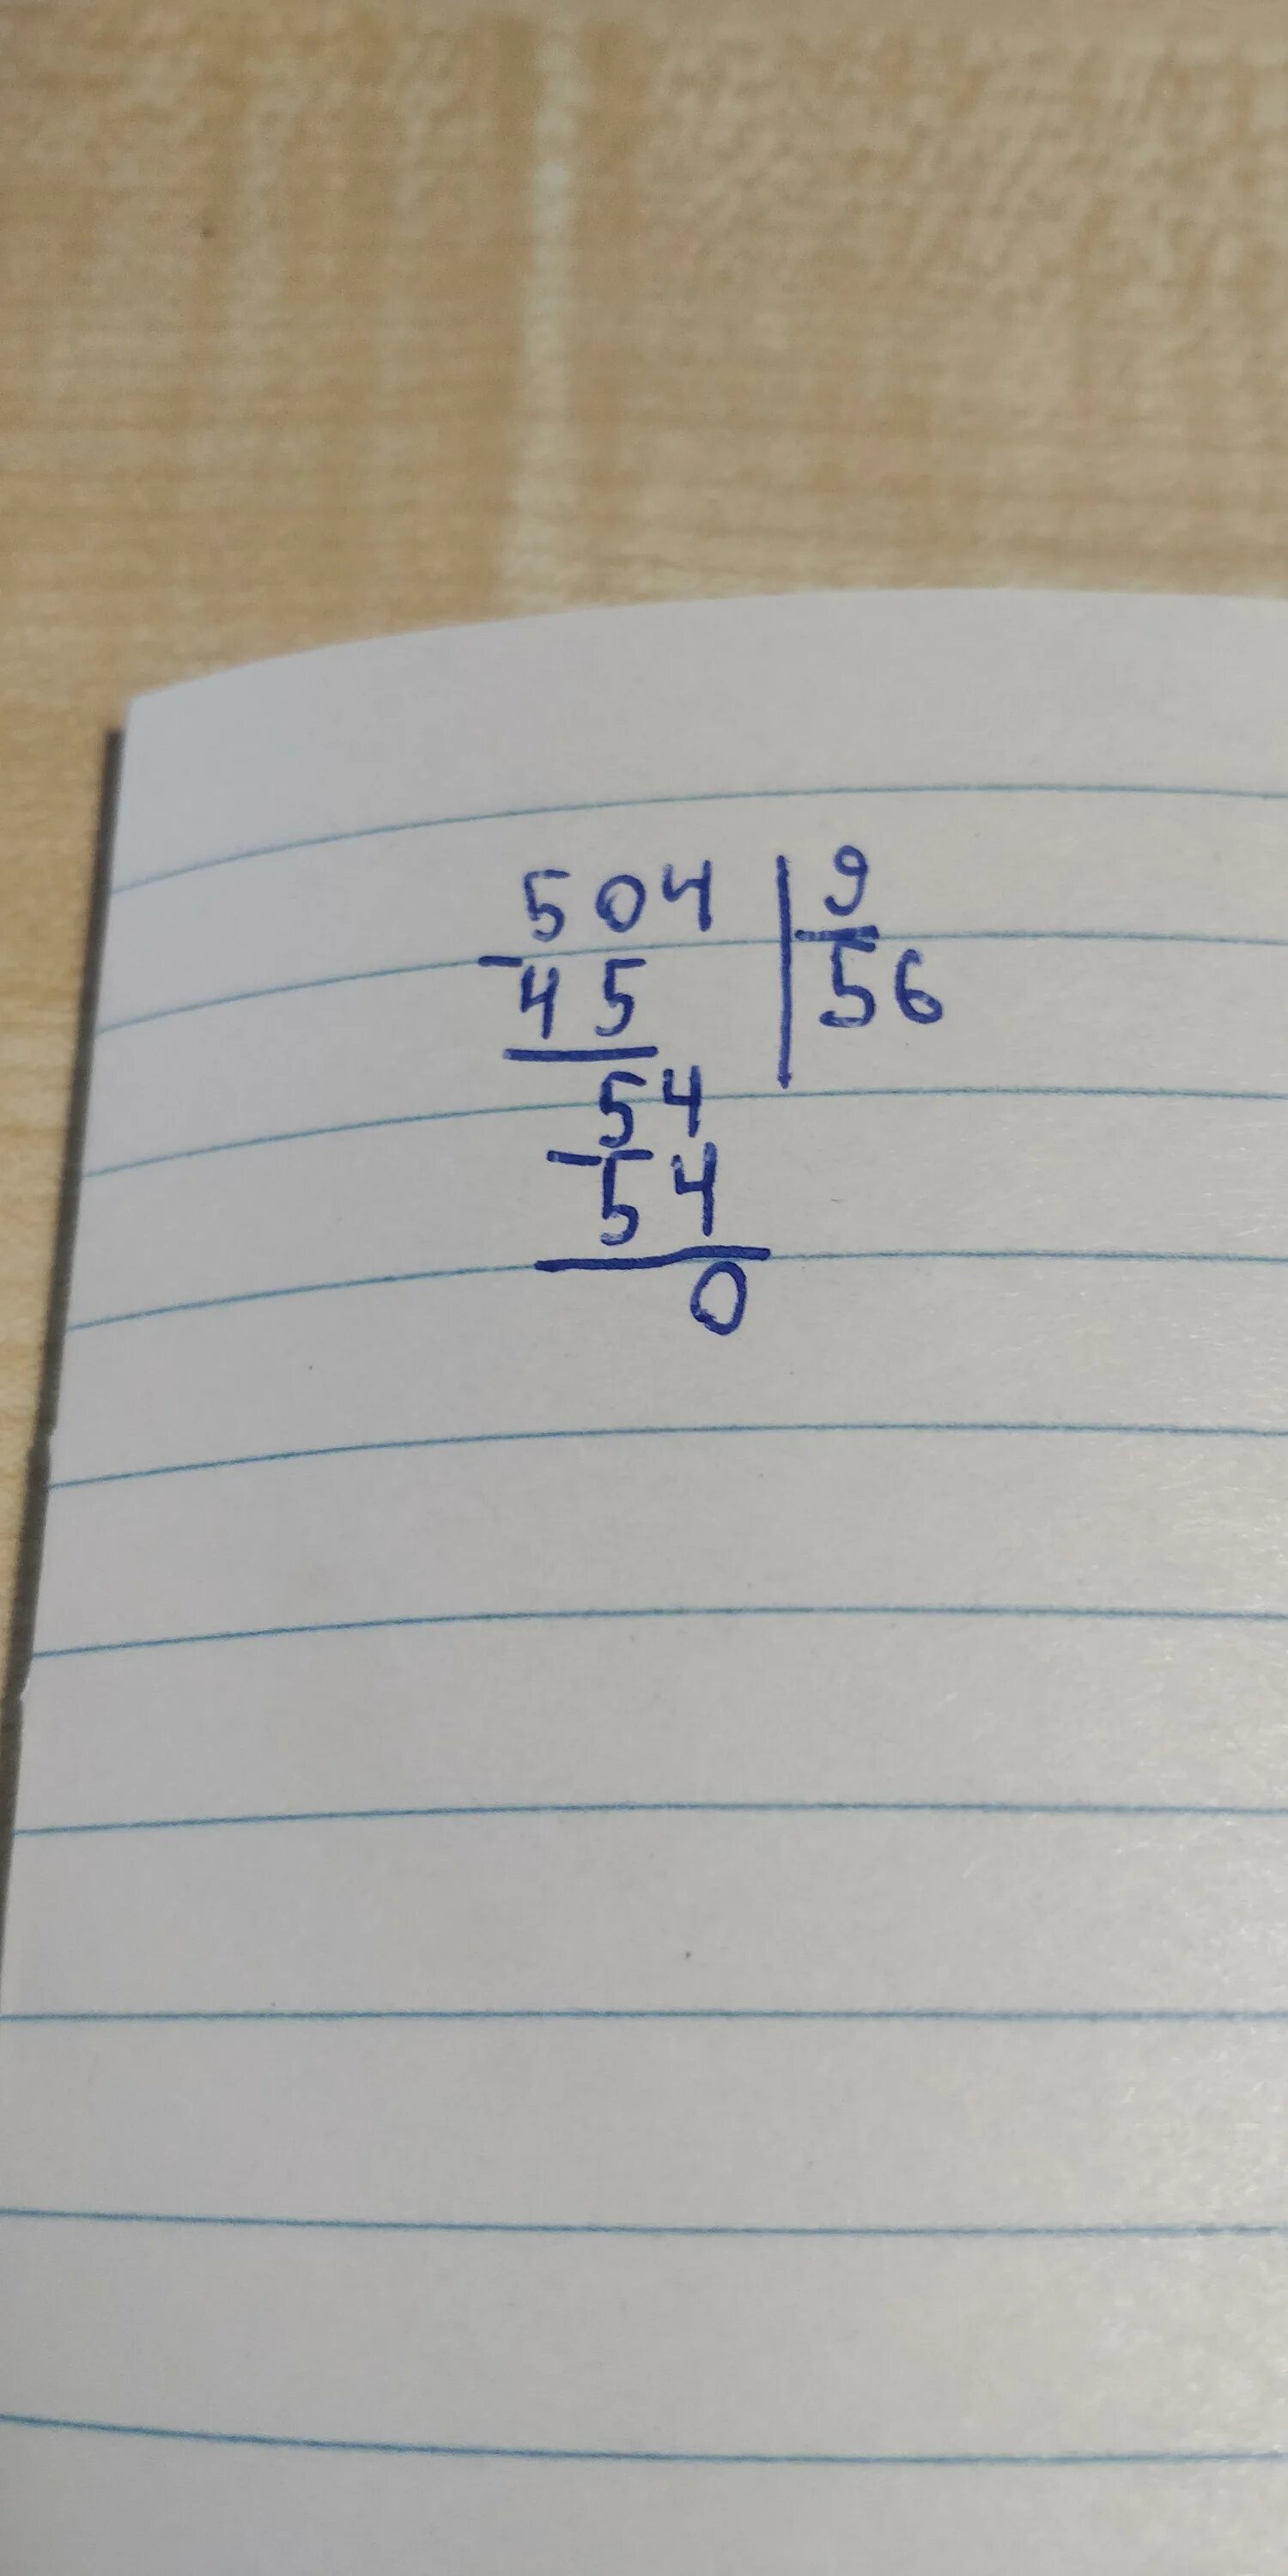 504 | 9
- 45 | 56
54
- 54
0